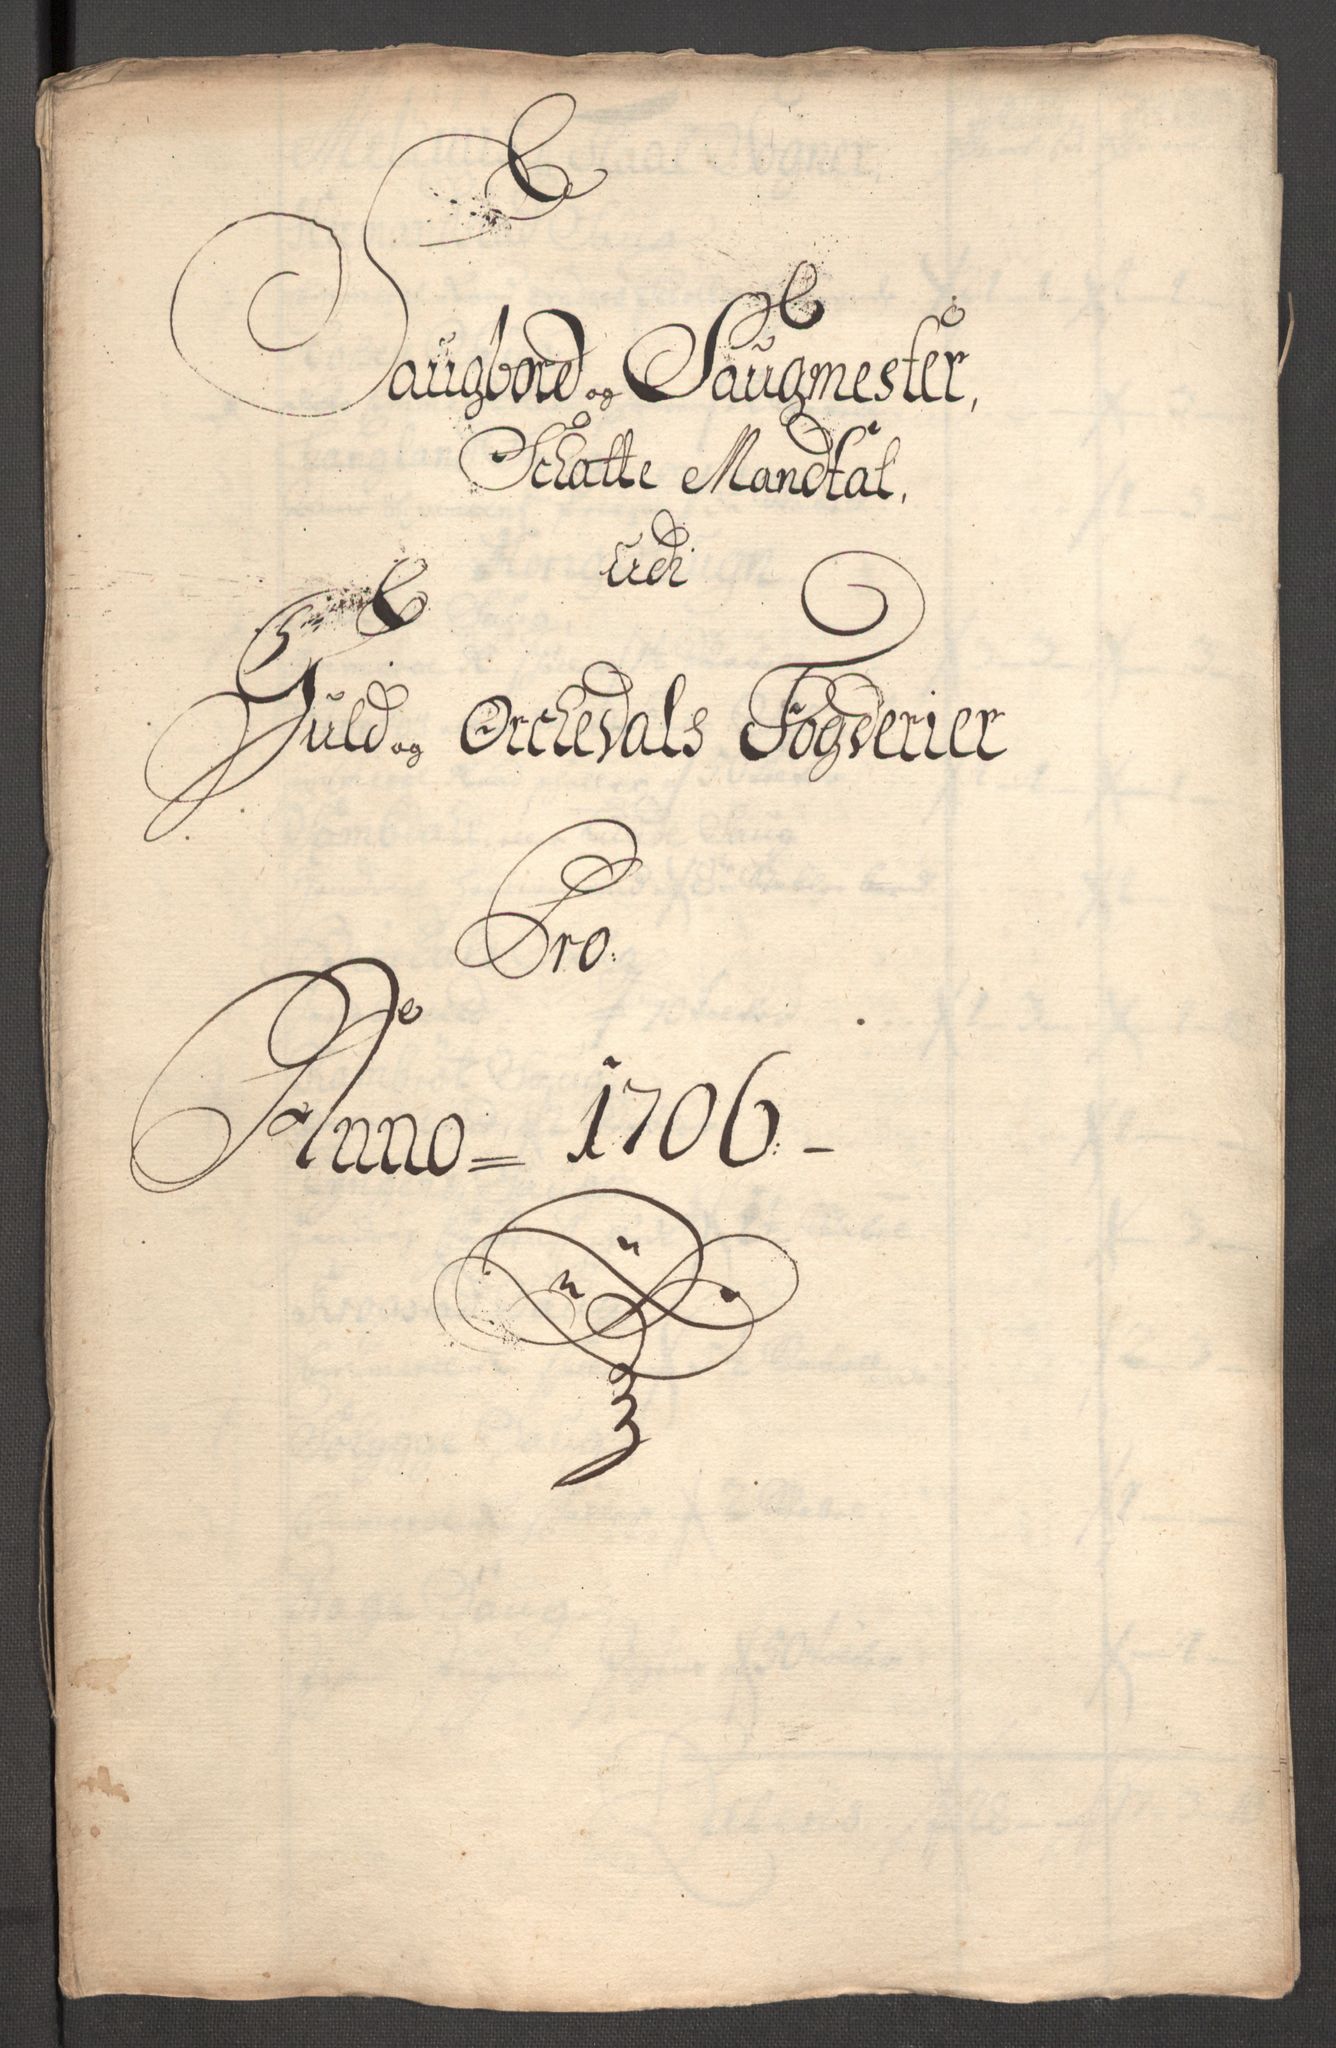 Saugbord og Saugmester,
Schatte Mandtal,
Udi
Guld og Orchedals Fogderier
Pro.
Anno = 1706. -